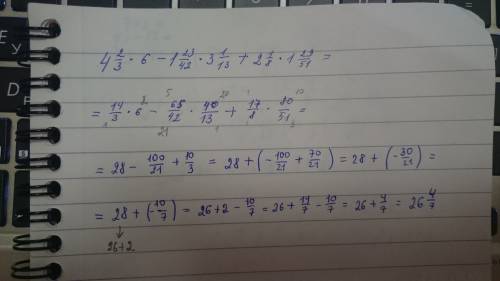 4 2/3 · 6 − 1 23/42 · 3 1/13 + 2 1/8 · 1 29/51 =
= 14/3 · 6 − 65/42 · 40/13 + 17/8 · 80/51 =
= 28 − 100/21 + 10/3 = 28 + (−100/21 + 70/21) = 28 + (−30/21) =
= 28 + (−10/7) = 26 + 2 − 10/7 = 26 + 14/7 − 10/7 = 26 + 4/7 = 26 4/7
26 + 2